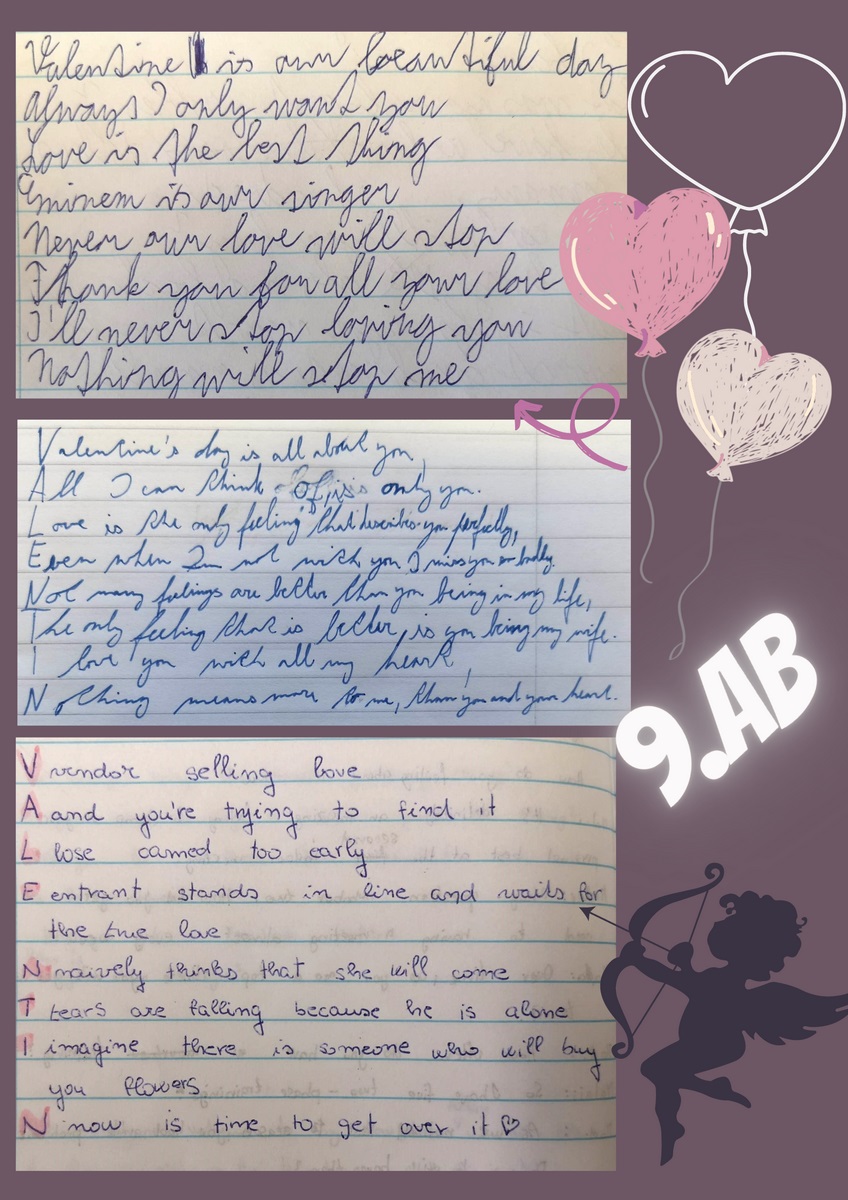 Valentine is our beautiful day
Always I only want you
Love is the best thing
Eminem is our singer
Never our love will stop
Thank you for all your love
I'll never stop loving you
Nothing will stop me
Valentine's day is all about you,
All I can think of, is only you.
Love is the only feeling that describes you perfectly,
Even when I'm not with you I miss you so badly.
Not many feelings are better than you being in my life,
The only feeling that is better, is you being my wife.
I love you with all my heart,
Nothing means more to me, than you and your heart.
9.AB
V vendor selling love
A and you're trying to find it
L lose camed too early
E entrant stands in line and waits for
the true love
N naively thinks that she will come
T tears are falling because he is alone
I imagine there is someone who will buy
you flowers
N now is time to get over it ♡